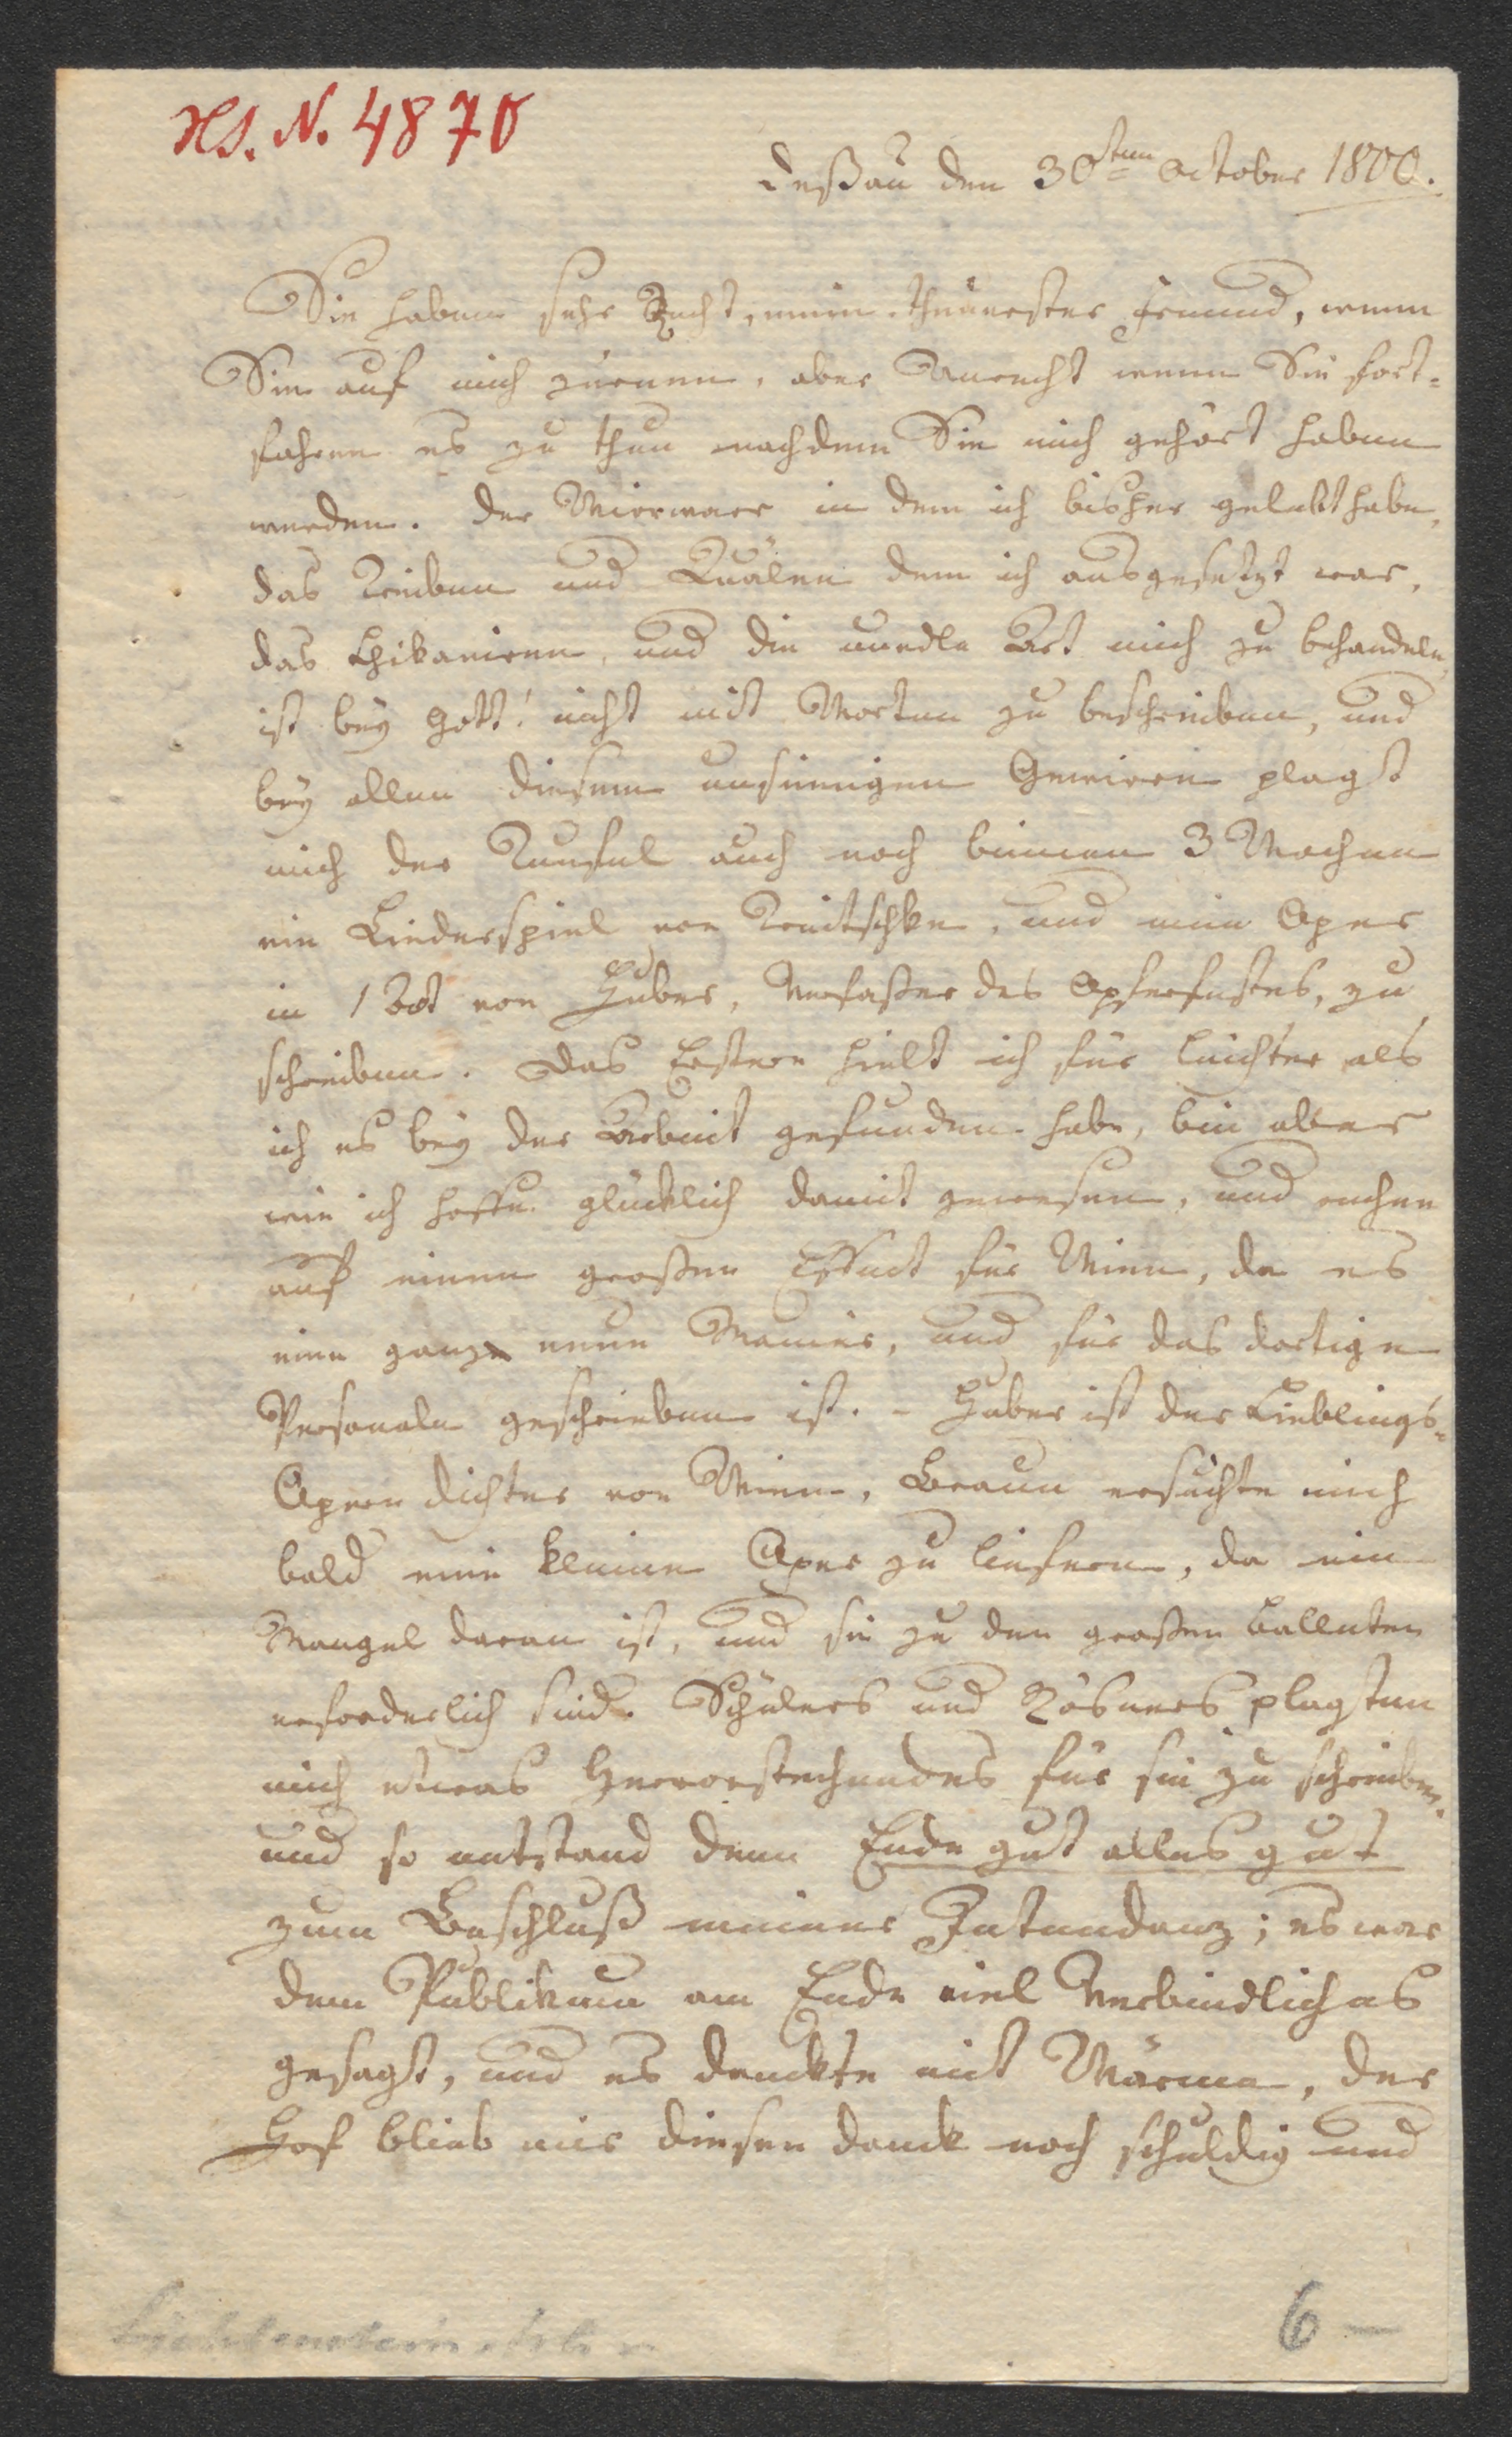 Hs. N. 4870
Deßau den 30sten October 1800.
Sie haben sehr Recht, mein theuerster Freund, wenn
Sie auf mich zürnen, aber Unrecht wenn Sie fort-
fahren es zu thun nachdem Sie mich gehört haben
werden. Der Wirrwarr in dem ich bisher gelebt habe,
das Treiben und Quälen dem ich ausgesetzt war,
das Chikaniren, und die unedle Art mich zu behandeln,
ist bey Gott! nicht mit Worten zu beschreiben, und
bey allen diesem unsinnigen Gewirre plagt
mich der Teufel auch noch binnen 3 Wochen
ein Liederspiel von Treitschke, und eine Oper
in 1 Act von Huber, Verfaßer des Opferfestes, zu
schreiben. Das Erstere hielt ich für leichter als
ich es bey der Arbeit gefunden habe, bin aber
wie ich hoffe glücklich damit gewesen, und rechne
auf einen großen Effect für Wien, da es
eine ganz neue Manier, und für das dortige
Personale geschrieben ist. - Huber ist der Lieblings-
Opern dichter von Wien, Braun ersuchte mich
bald eine kleine Oper zu liefern, da ein
Mangel daran ist, und sie zu den großen Balleten
erforderlich sind. Schülers und Rösners plagten
mich etwas Hervorstechendes für sie zu schreiben,
und so entstand denn Ende gut alles gut
zum Beschluß meiner Intendanz; es war
dem Publikum am Ende viel Verbindliches
gesagt, und es denckte mit Wärme, der
Hof blieb mir diesen Danck noch schuldig und
Lichtenstein,
6 —